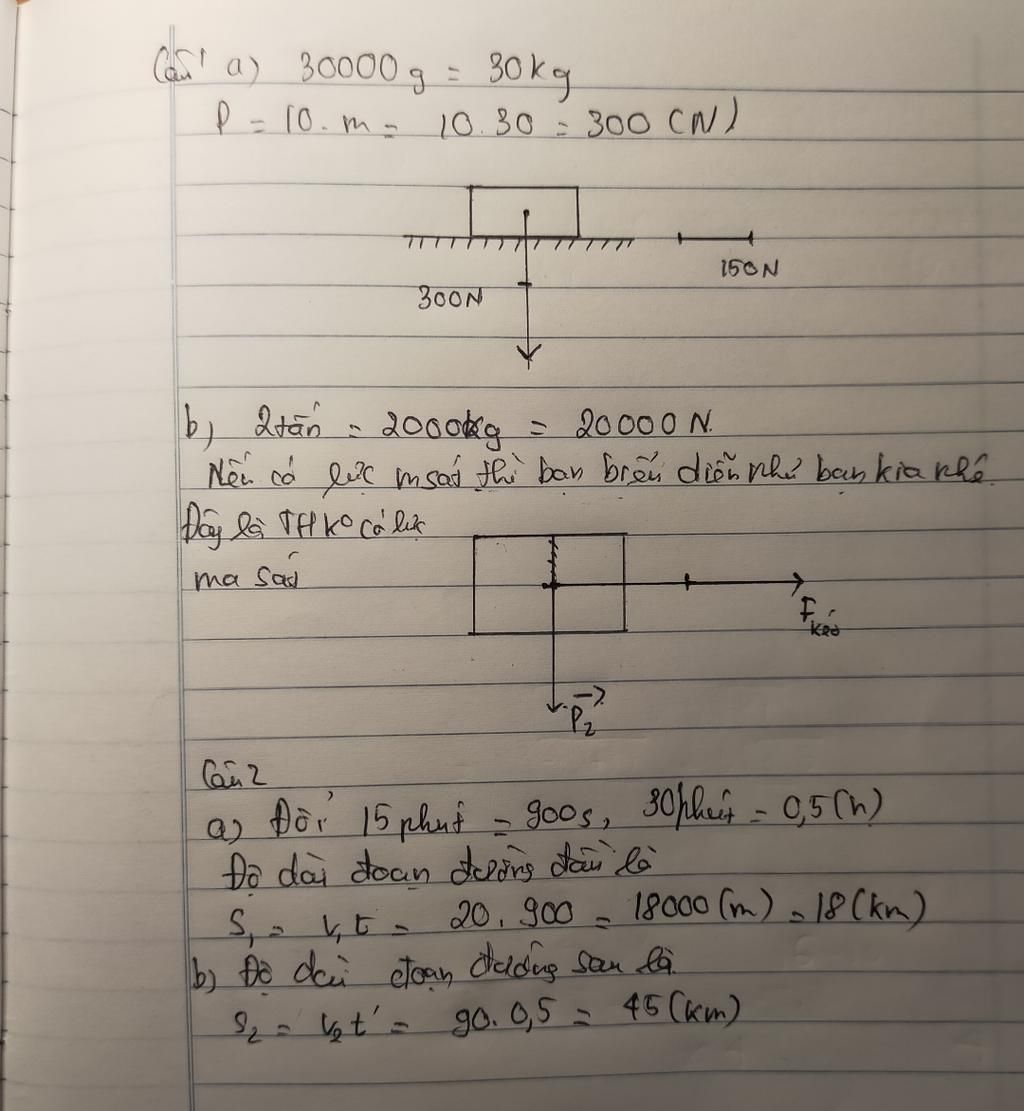 Câu 1 a) 30000g = 30kg
P = 10.m = 10.30 = 300 (N)
150N
300N
b) 2 tấn = 2000kg = 20000 N.
Nếu có lực m sát thì bạn biểu diễn như bạn kia nhé.
Đây là TH k° có lực
ma sát
F kéo
P₂
Câu 2
a) Đổi 15 phút = 900s, 30 phút = 0,5 (h)
Độ dài đoạn đường đầu là
S₁ = v₁t = 20.900 = 18000 (m) = 18 (km)
b) Độ dài đoạn đường sau là
S₂ = v₂t' = 90.0,5 = 45 (km)